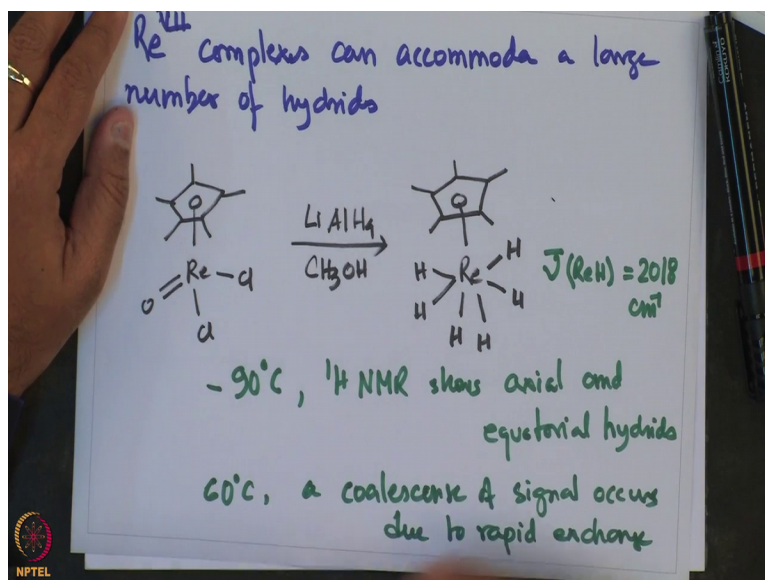 Re VII complexes can accommoda a large
number of hydrids
Re Cl
O
Cl
LiAlH4
CH3OH
H Re H
H H
H H
ν̄(ReH) = 2018
cm-1
-90°C, 1H NMR shows axial and
equatorial hydrids
60°C, a coalescense of signal occurs
due to rapid exchange
NPTEL